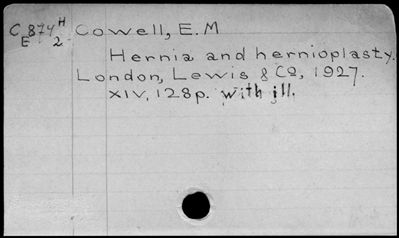 C E 874 H 2 Cowell, E. M
Hernia and hernioplasty.
London, Lewis & Co, 1927.
XIV, 128p. with ill.